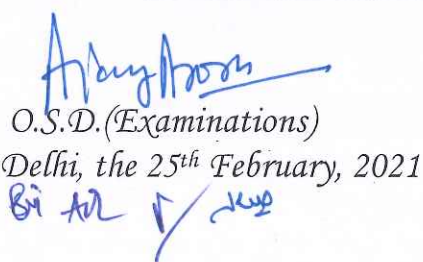 O.S.D.(Examinations)
Delhi, the 25th February, 2021